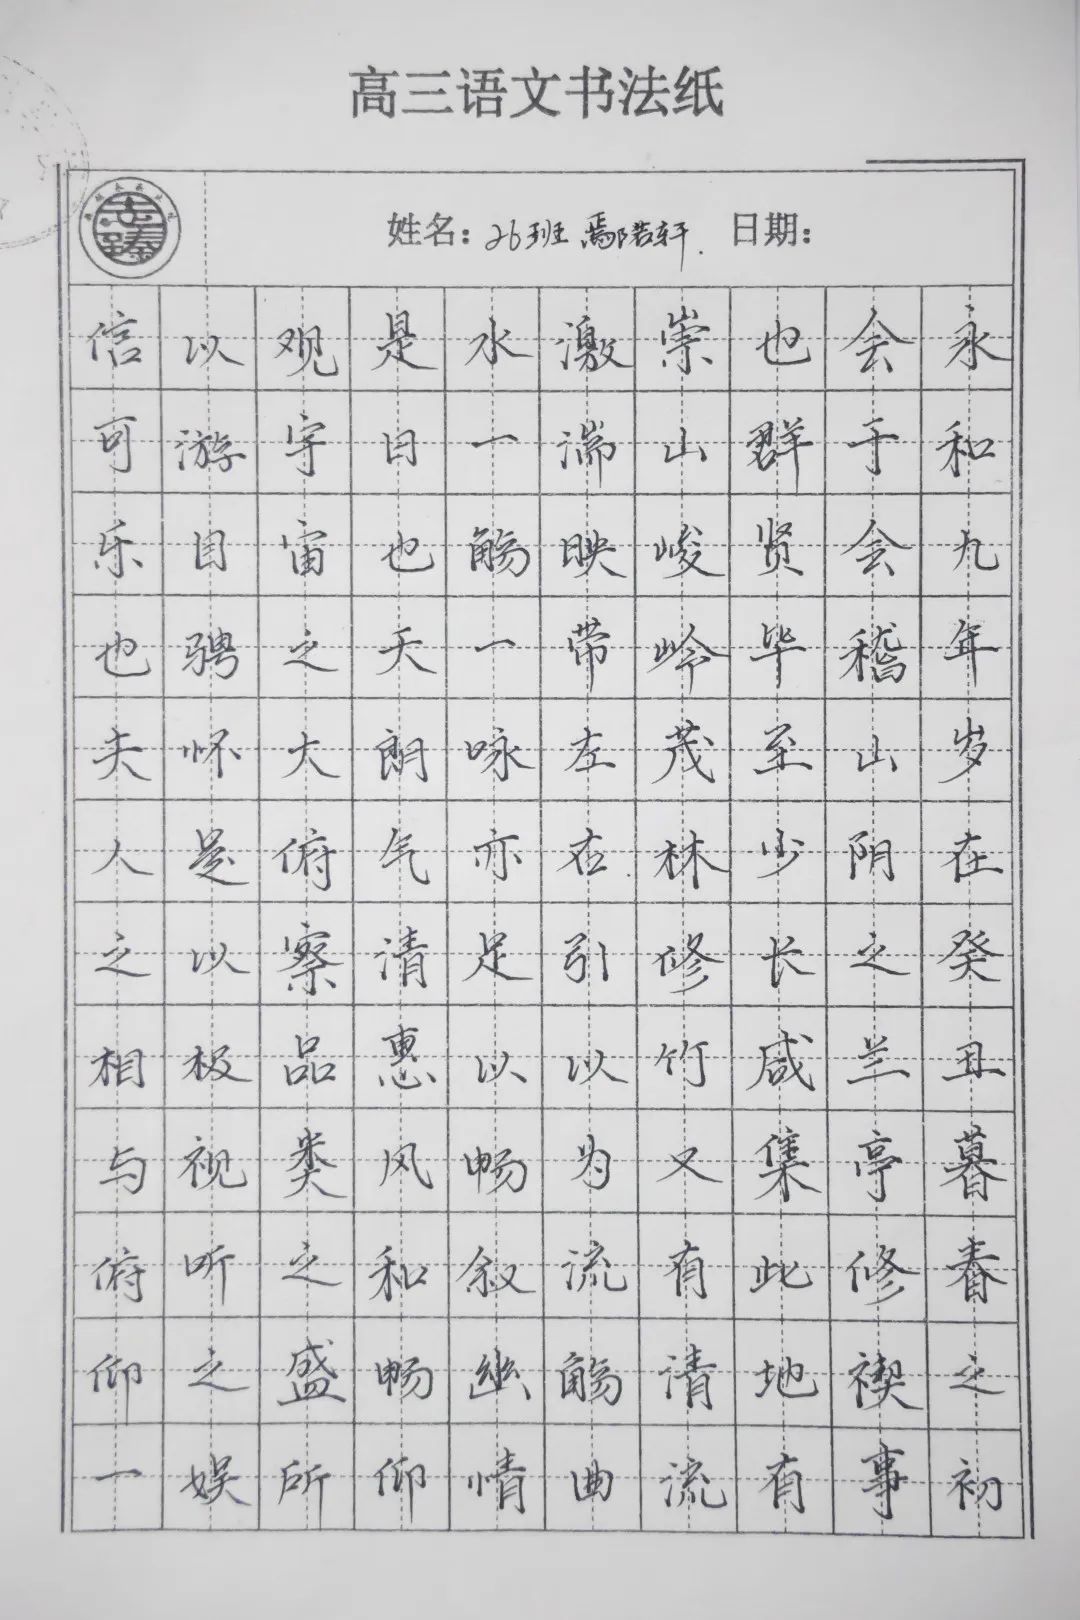 高三语文书法纸
姓名：26班 鄢若轩. 日期：
永和九年岁在癸丑暮春之初
会于会稽山阴之兰亭修禊事
也群贤毕至少长咸集此地有
崇山峻岭茂林修竹又有清流
激湍映带左右引以为流觞曲
水一觞一咏亦足以畅叙幽情
是日也天朗气清惠风和畅仰
观宇宙之大俯察品类之盛所
以游目骋怀是以极视听之娱
信可乐也夫人之相与俯仰一